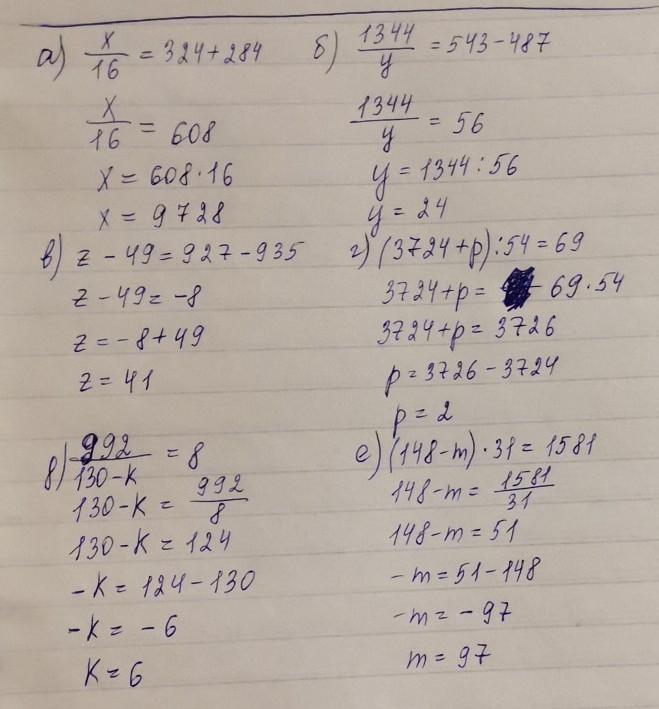 а) x/16 = 324+284
x/16 = 608
x = 608·16
x = 9728
б) 1344/y = 543-487
1344/y = 56
y = 1344:56
y = 24
в) z - 49 = 927-935
z - 49 = -8
z = -8+49
z = 41
г) (3724+p):54 = 69
3724+p = 69·54
3724+p = 3726
p = 3726-3724
p = 2
д) 992/130-k = 8
130-k = 992/8
130-k = 124
-k = 124-130
-k = -6
k = 6
е) (148-m)·31 = 1581
148-m = 1581/31
148-m = 51
-m = 51-148
-m = -97
m = 97